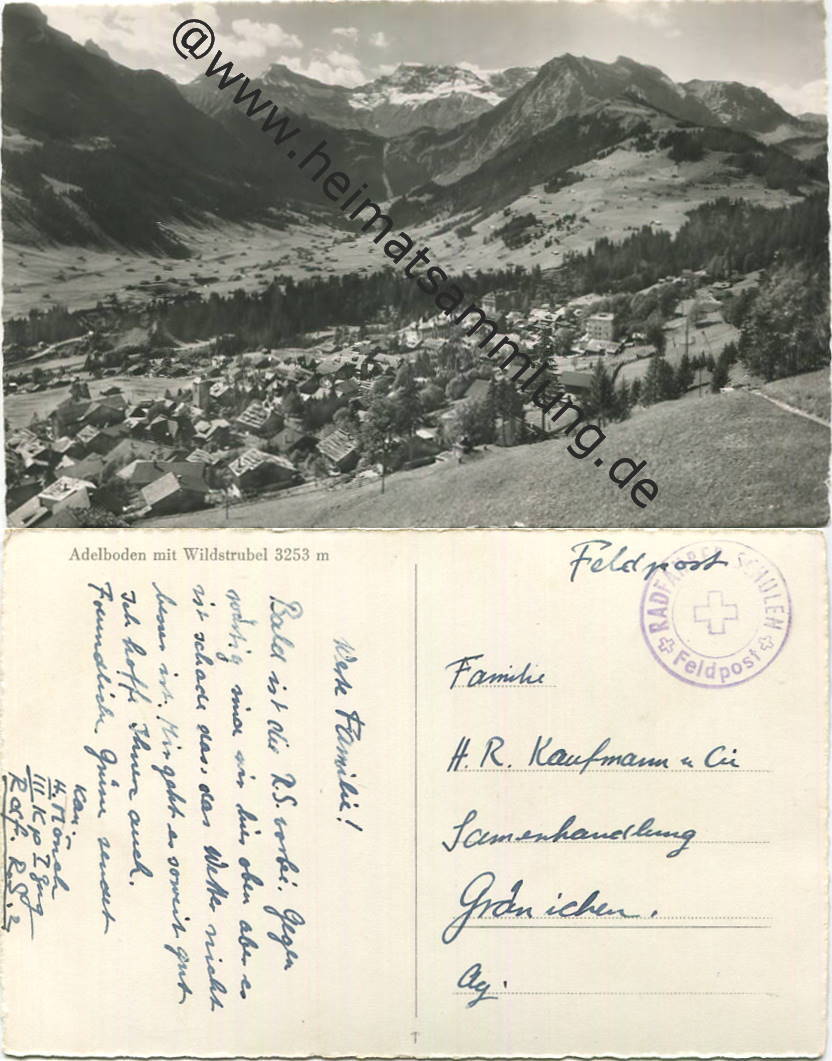 @www.heimatsammlung.de
Adelboden mit Wildstrubel 3253 m
Werte Familie!
Bald ist die R.S. vorbei. Gegen
wir hier oben aber es
ist schade dass das Wetter nicht
besser ist. Mir geht es soweit gut
Ich hoffe Ihnen auch.
Freundliche Grüsse sendet
H. Mönch
III Kp I Zug
Radf. R.S. 2
Feldpost
RADFAHRER SCHULEN
Feldpost
Familie
H. R. Kaufmann u Cie
Samenhandlung
Gränichen.
Ag.